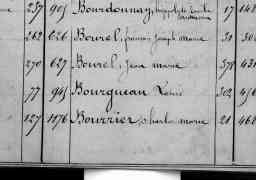 237 905 Bourdonnay, hyppolyte Emile
262 626 Bourel, francois Joseph Marie 31
270 627 Bourel, Jean marie 378 430
77 945 Bourgueau Louis 302 456
127 1076 Bourrier, charles marie 21 468